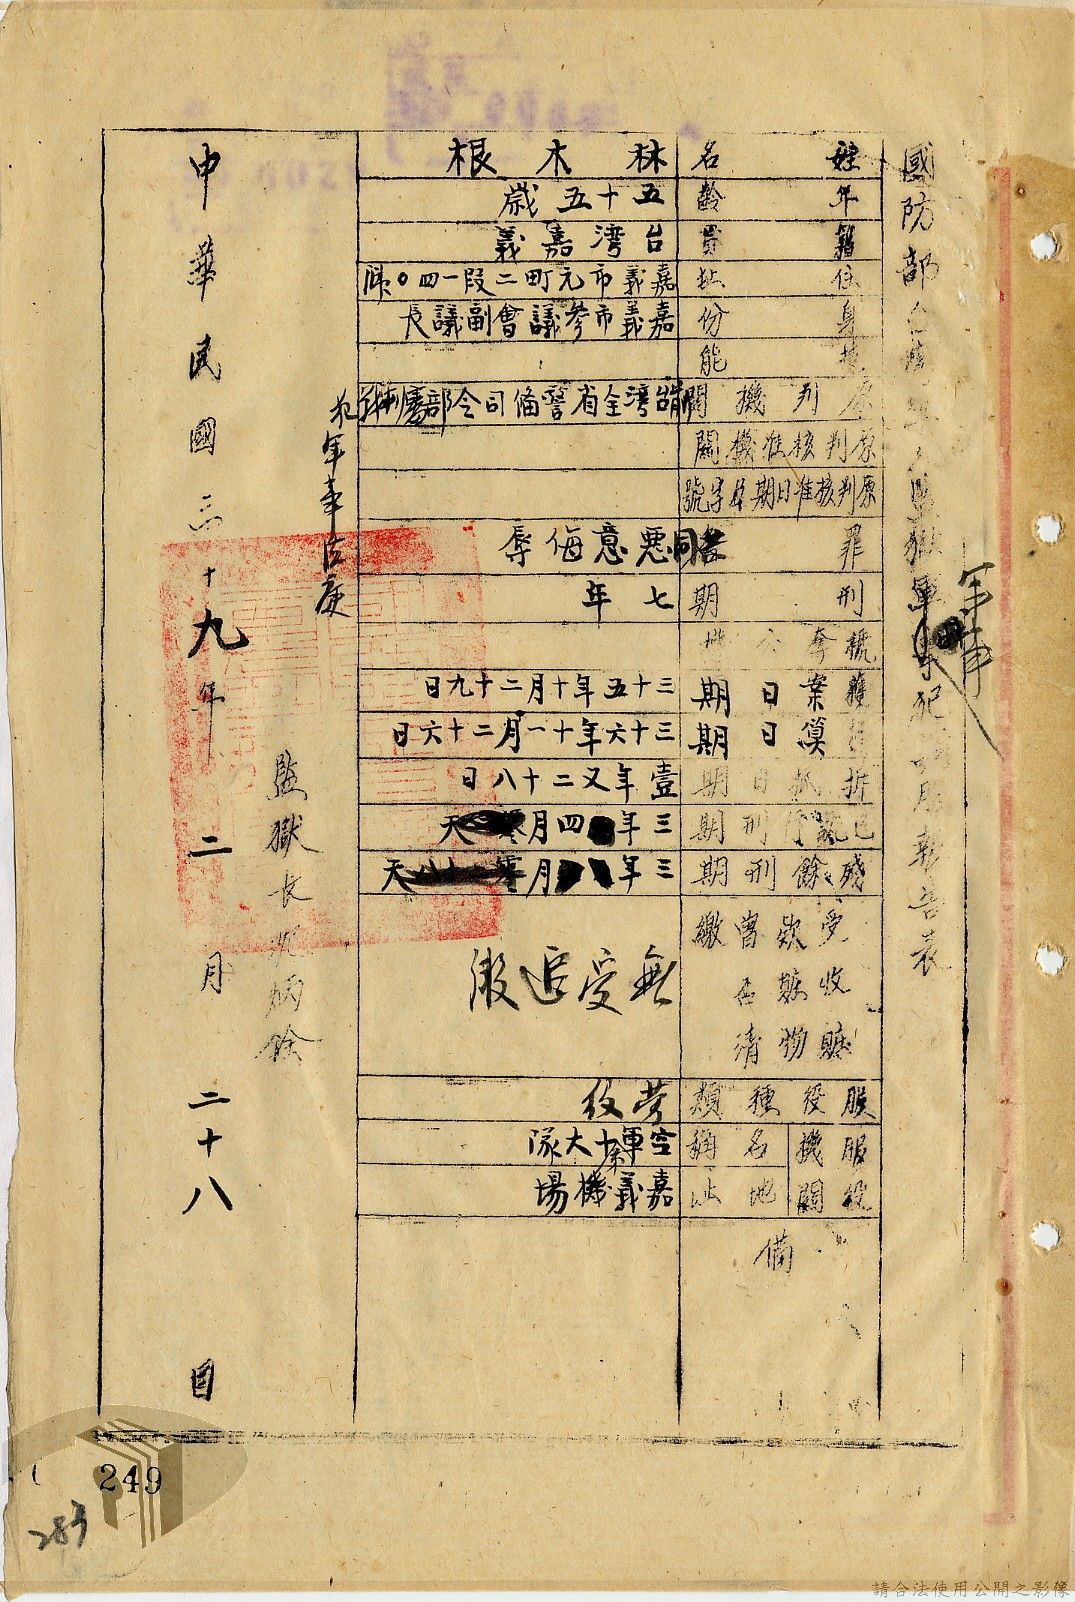 國防部台灣軍人監獄軍事犯調服勞役報告表
姓名 林木根
年齡 五十五歲
籍貫 台灣嘉義
住址 嘉義市元町二段一四〇號
身份 嘉義市參議會副議長
技能
原判機關 前台灣全省警備司令部
犯軍事法庭
原判核准機關
原判核准日期及字號
罪 共同惡意侮辱
刑期 七年
褫奪公權
獲案日期 三十五年十月二十九日
起算日期 三十六年十一月二十六日
折抵日期 壹年又二十八日
已執行刑期 三年四月天
殘餘刑期 三年月天
受收贓
欵贓物
曾否繳清
無受追繳
服役種類 勞役
服役機關
名稱 空軍十大隊
地址 嘉義機場
備
監獄長
中華民國三十九年二月二十八日
249
283
請合法使用公開之影像